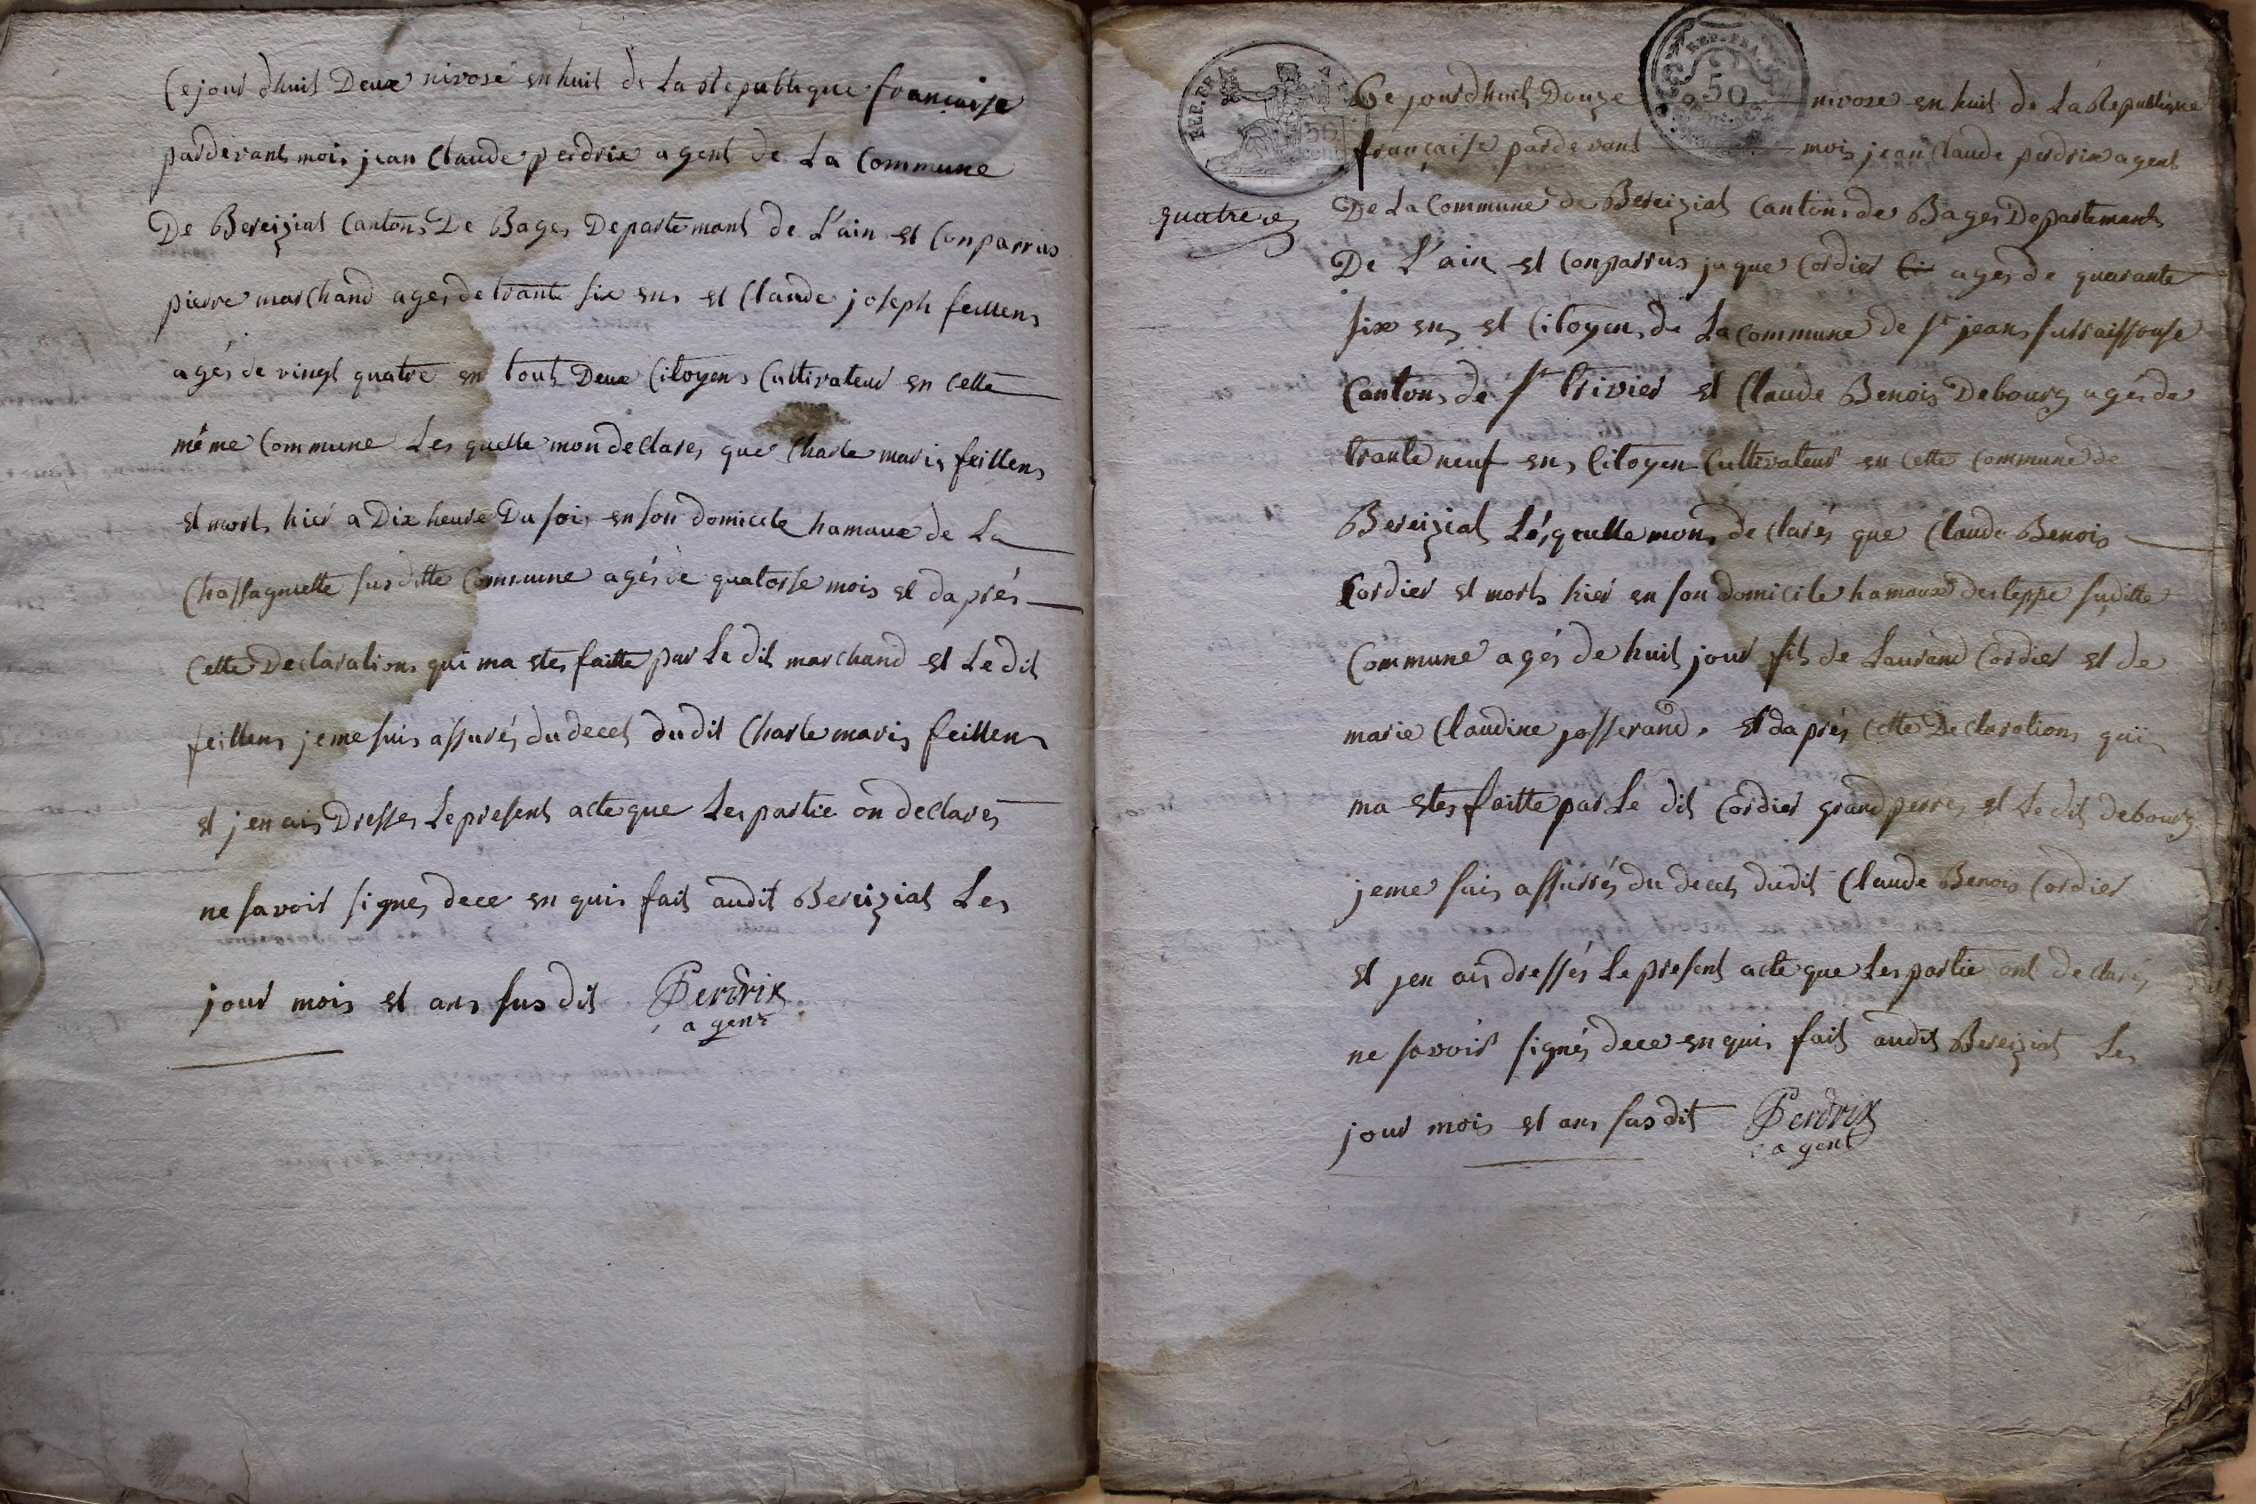 Cejourdhuit Deux nivose en huit de La Republique francaise
pardevant moi jean Claude perdrix agent de La Commune
De Bereiziat Canton De Bages Departemant de L'ain et Conparrus
pierre marChand ages de trante six ens et Claude joseph feillens
agés de vingt quatre en tout Deux Citoyens Cultivateur en Cette
même Commune Les quelle mon declares que Charle maris feillens
et morts hier a Dix heure Du soir en son domicile hamaux de La
Chassagnette sus ditte Commune agés de quatorse mois et daprés
Cette Declarations qui ma etes faitte par Le dit marChand et Le dit
feillens jeme suis assurés du deces dudit Charle maris feillens
et jen ais Dresses Lepresent acte que Les partie on declarés
ne savoir signes dece en quis fait audit Bereiziat Les
jour mois et ans sus dit Perdrix
agent
REP. FRA.
50
REP. FRA.
50
quatre
Cejourdhuit Douze nivose en huit de La Republique
française pardevant mois jean Claude perdrix agent
De La Commune de Bereiziat Cantons de Bages Departemant
De L'ain et Conparrus jaque Cordier Ci agés de quarante
six ens et Citoyens de La Commune de St jean surraissouse
Cantons de St Trivier et Claude Benois Debourg agés de
trante neuf ens Citoyen Cultivateur en Cette Commune de
Bereiziat Lésquelle mons declarés que Claude Benois
Cordier et morts hier en son domicile hamaux desteppe suditte
Commune agés de huit jour fils de Laurand Cordier et de
marie Claudine josserand. et daprés Cette Declarations qui
ma etes faitte par Le dit Cordier grand perres et Le dit debourg
jeme suis assurrés du deces dudit Claude Benois Cordier
et jen ais dressés Lepresent acte que Les partie ont declares
ne savoir signés dece en quis fait audit Bereiziat Les
jour mois et ans sus dit Perdrix
agent